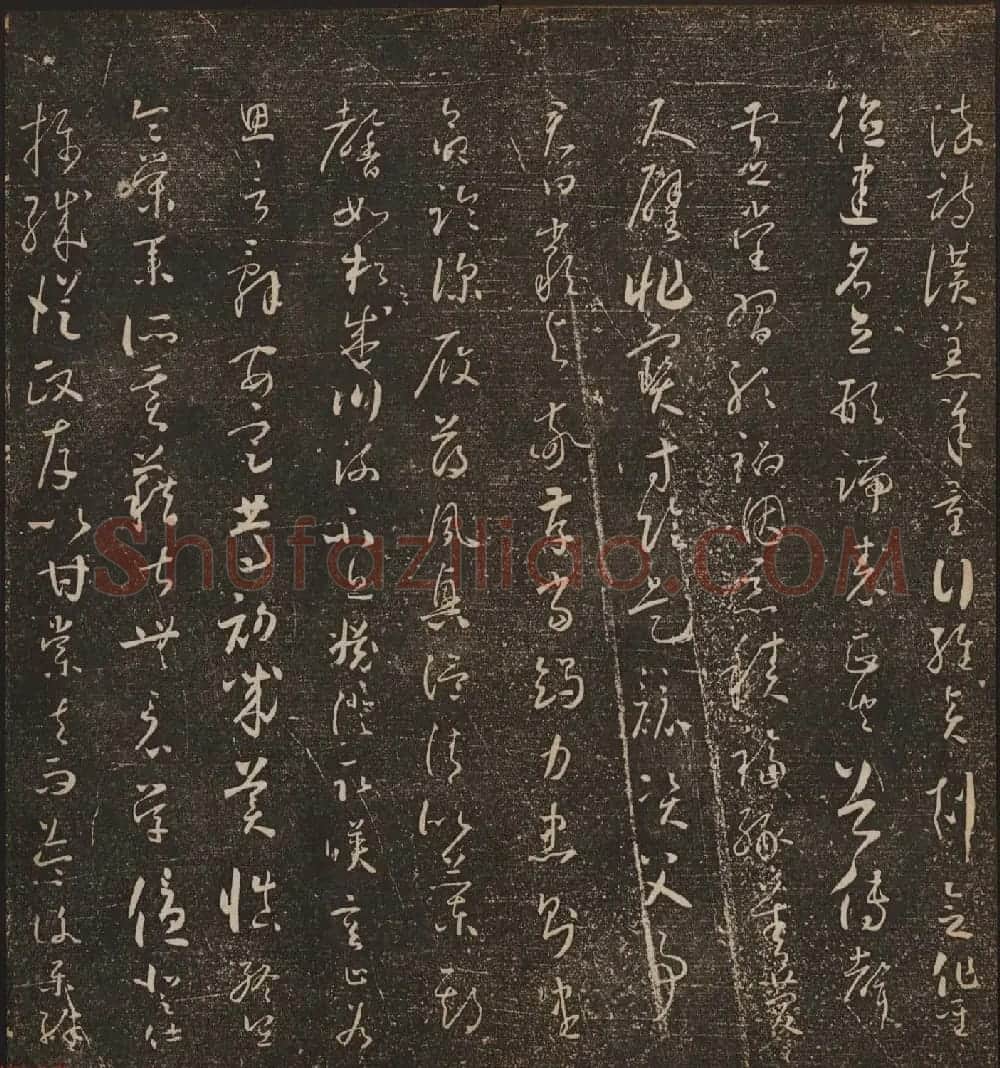 染詩讃羔羊景行維賢剋念作聖
德建名立形端表正空谷傳聲
虛堂習聽禍因惡積福緣善慶
尺璧非寶寸陰是競資父事
君曰嚴與敬孝當竭力忠則盡
命臨深履薄夙興溫凊似蘭斯
馨如松之盛川流不息淵澄取暎容止若
思言辭安定篤初誠美慎終宜
令榮業所基藉甚無竟學優登仕
攝職從政存以甘棠去而益詠樂殊
Shufaziliao.COM